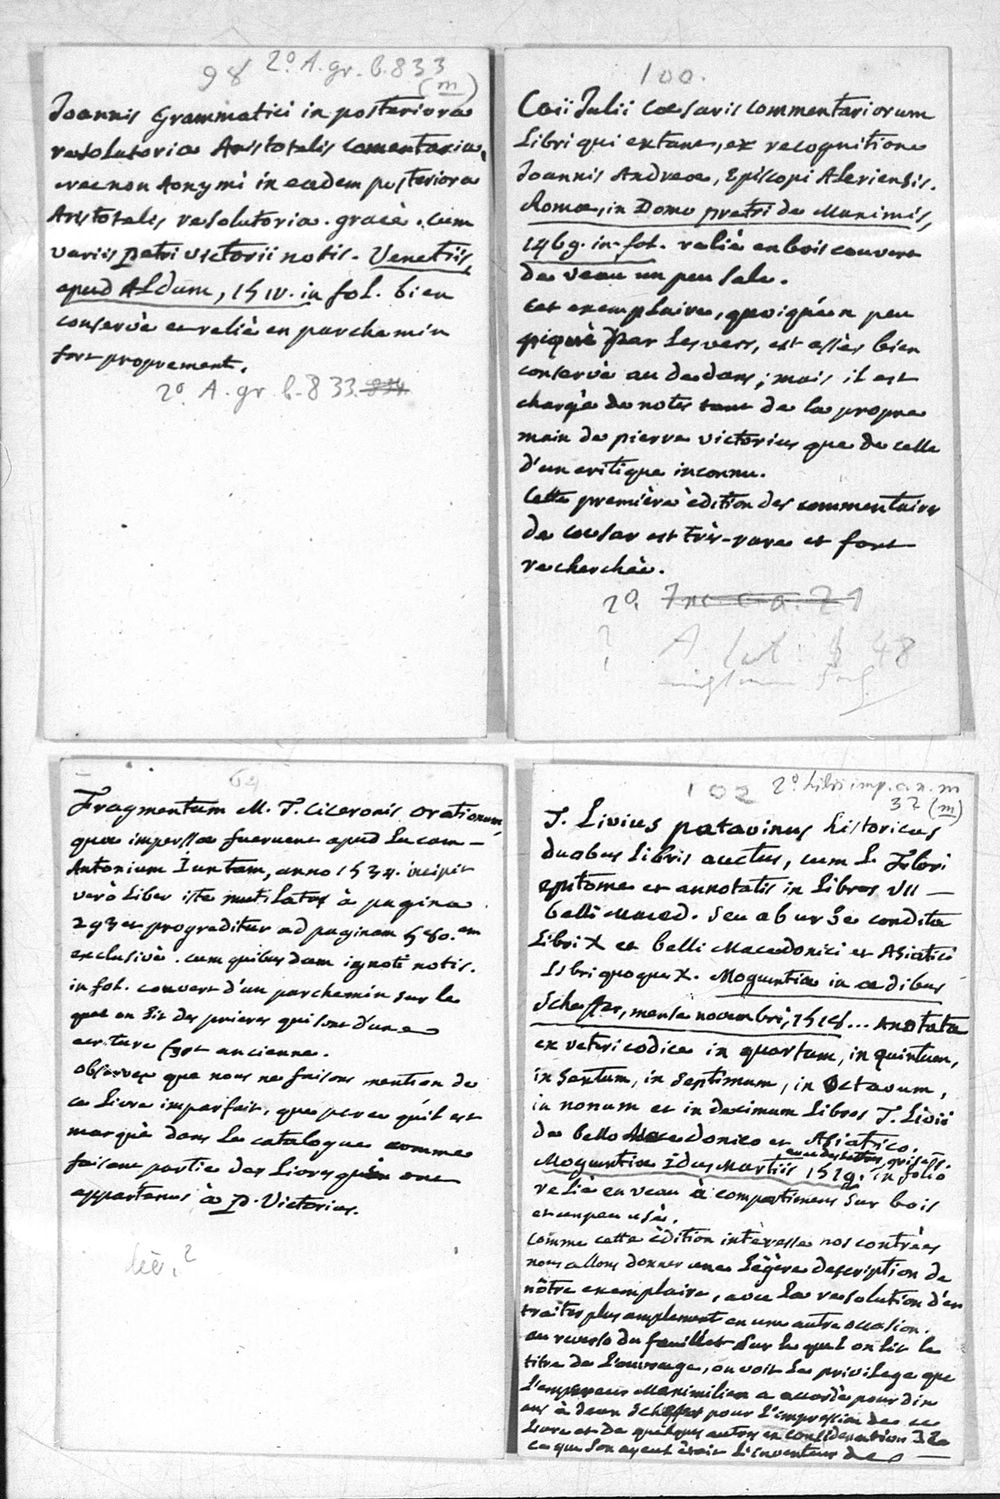 98 2º A. gr. b. 833
(m)
Joannis Grammatici in posteriora
resolutoria Aristotelis comentaria,
necnon Aonymi in eadem posteriora
Aristotelis resolutoria. graecè. cum
variis petri victorii notis. Venetiis,
apud Aldum, in fol. bien
conservè et reliè en parchemin
fort proprement.
2º A. gr. b. 833.
100.
Caii Julii Caesaris Commentariorum
Libri qui extant, ex recognitione
Joannis Andreae, Episcopi Aleriensis.
Romae, in Domo petri de Maximis,
1469. in-fol. reliè en bois couvert
de veau un peu sale.
cet exemplaire, quoiquén peu
piquè par les vers, est assès bien
conservè au dedans; mais il est
chargè de notes tant de la propre
main de pierre victorius que de celle
d'un critique inconnu.
Cette première èdition des commentaires
de Caesar est très-rare et fort
recherchèe.
2º. Inc. c. a.
? A. lat. b. 48
64
Fragmentum M. T. Ciceronis orationum,
quae impressae fuerunt apud Lucam-
Antonium Iuntam, anno 1534. incipit
verò Liber iste mutilatus à pagina
293 et progreditur ad paginam 580.em
exclusivè. cum quibusdam ignoti notis.
in fol. couvert d'un parchemin sur le
quel on lit des prieres qui sont d'une
ecriture fort ancienne.
observez que nous ne faisons mention de
ce Livre imparfait, que parce qu'il est
marquè dans le catalogue comme
faisant partie des Livres qui ont
appartenus à P. Victorius.
?
102 2º Libri imp. c. n. m
37 (m)
T. Livius patavinus historicus
duobus Libris auctus, cum L. Flori
epitome et annotatis in Libros VII
belli Maced. seu ab urbe condita
Libri X et belli Macedonici et Asiatici
Libri quoque X. Moguntiae in aedibus
Scheffer, mense novembri, 1518... Annotata
ex veteri codice in quartum, in quintum,
in sextum, in septimum, in octavum,
in nonum et in decimum Libros T. Livii
de bello Macedonico et Asiatico.
Moguntiae Idus Martiis 1519. in folio
reliè en veau à compartimens sur bois
et un peu usè.
Comme cette èdition intèresse nos contrèes
nous allons donner une lègère description de
nôtre exemplaire, avec la resolution d'en
traiter plus amplement en une autre occasion.
au reverso du feuillet sur le quel on lit le
titre de l'ouvrage, on voit le privilege que
l'empereur Maximilien a accordè pour dix
ans à Jean Scheffer pour l'impression de ce
Livre et de quelques autres en considèration de
ce que son ayeul ètait l'inventeur de